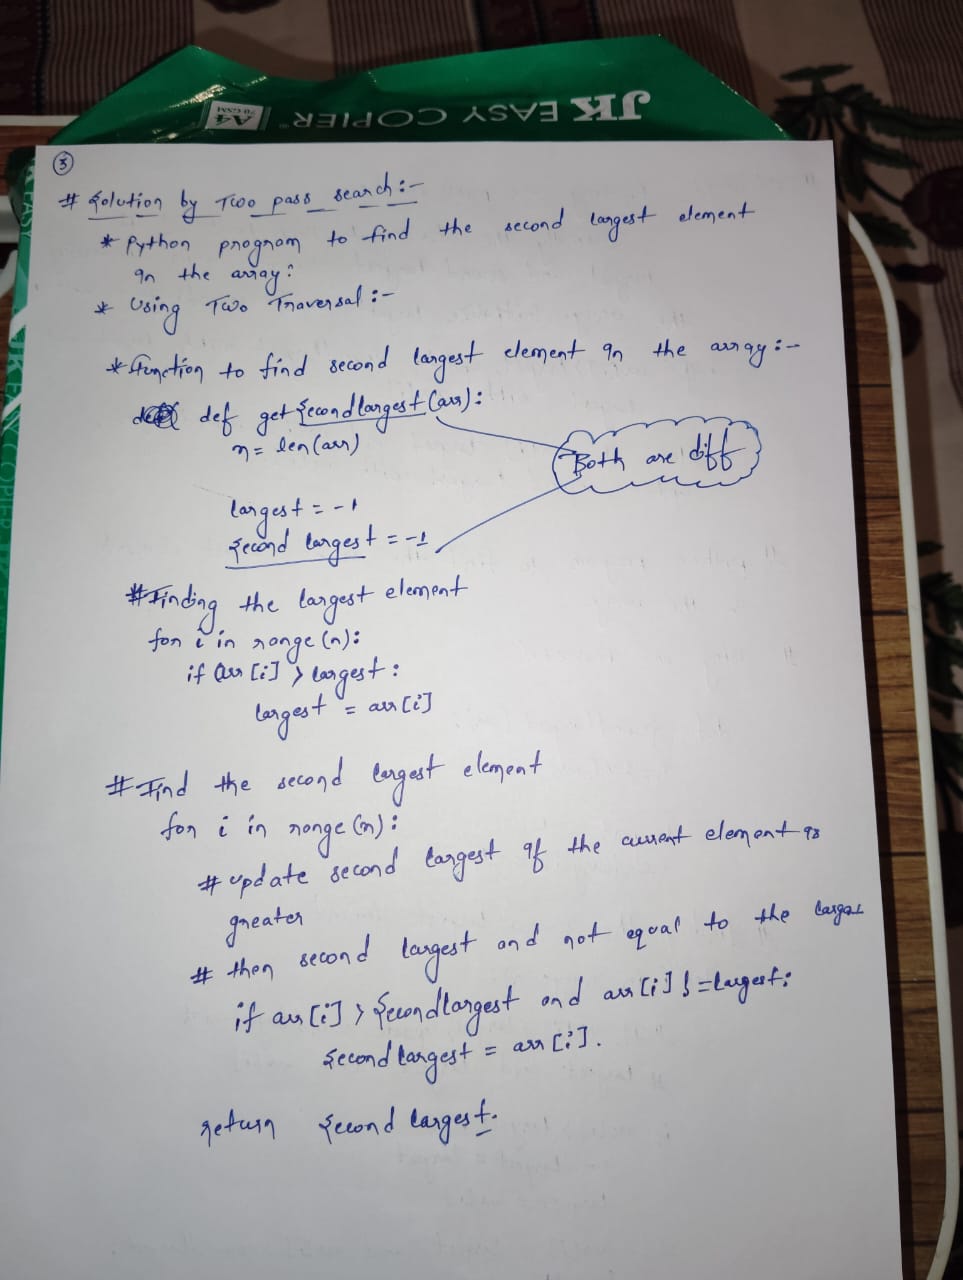 JK EASY COPIER
A4
70 GSM
3
# Solution by Two pass search :-
* Python program to find the second largest element
in the array:
* Using Two Traversal :-
* function to find second largest element in the array :-
def get Secondlargest (arr):
n = len(arr)
Both are diff
largest = -1
Second largest = -1
# Finding the largest element
for i in range (n):
if arr [i] > largest :
largest = arr [i]
# Find the second largest element
for i in range (n):
# update second largest if the current element is
greater
# then second largest and not equal to the larges
if arr [i] > Secondlargest and arr [i] != largest:
Second largest = arr [i].
return Second largest.